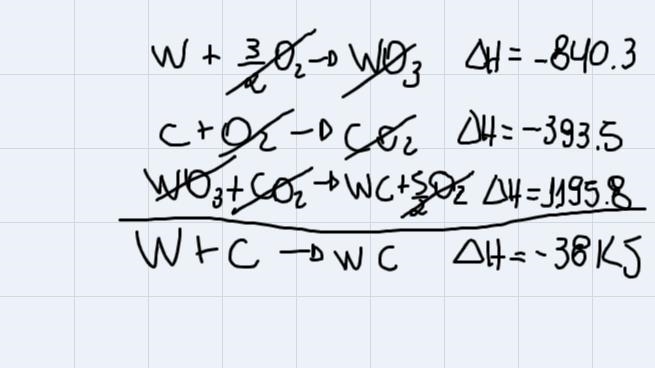 W + 3/2 O₂ → WO₃ ΔH = -840.3
C + O₂ → CO₂ ΔH = -393.5
WO₃ + CO₂ → WC + 5/2 O₂ ΔH = 1195.8
W + C → WC ΔH = -38 KJ